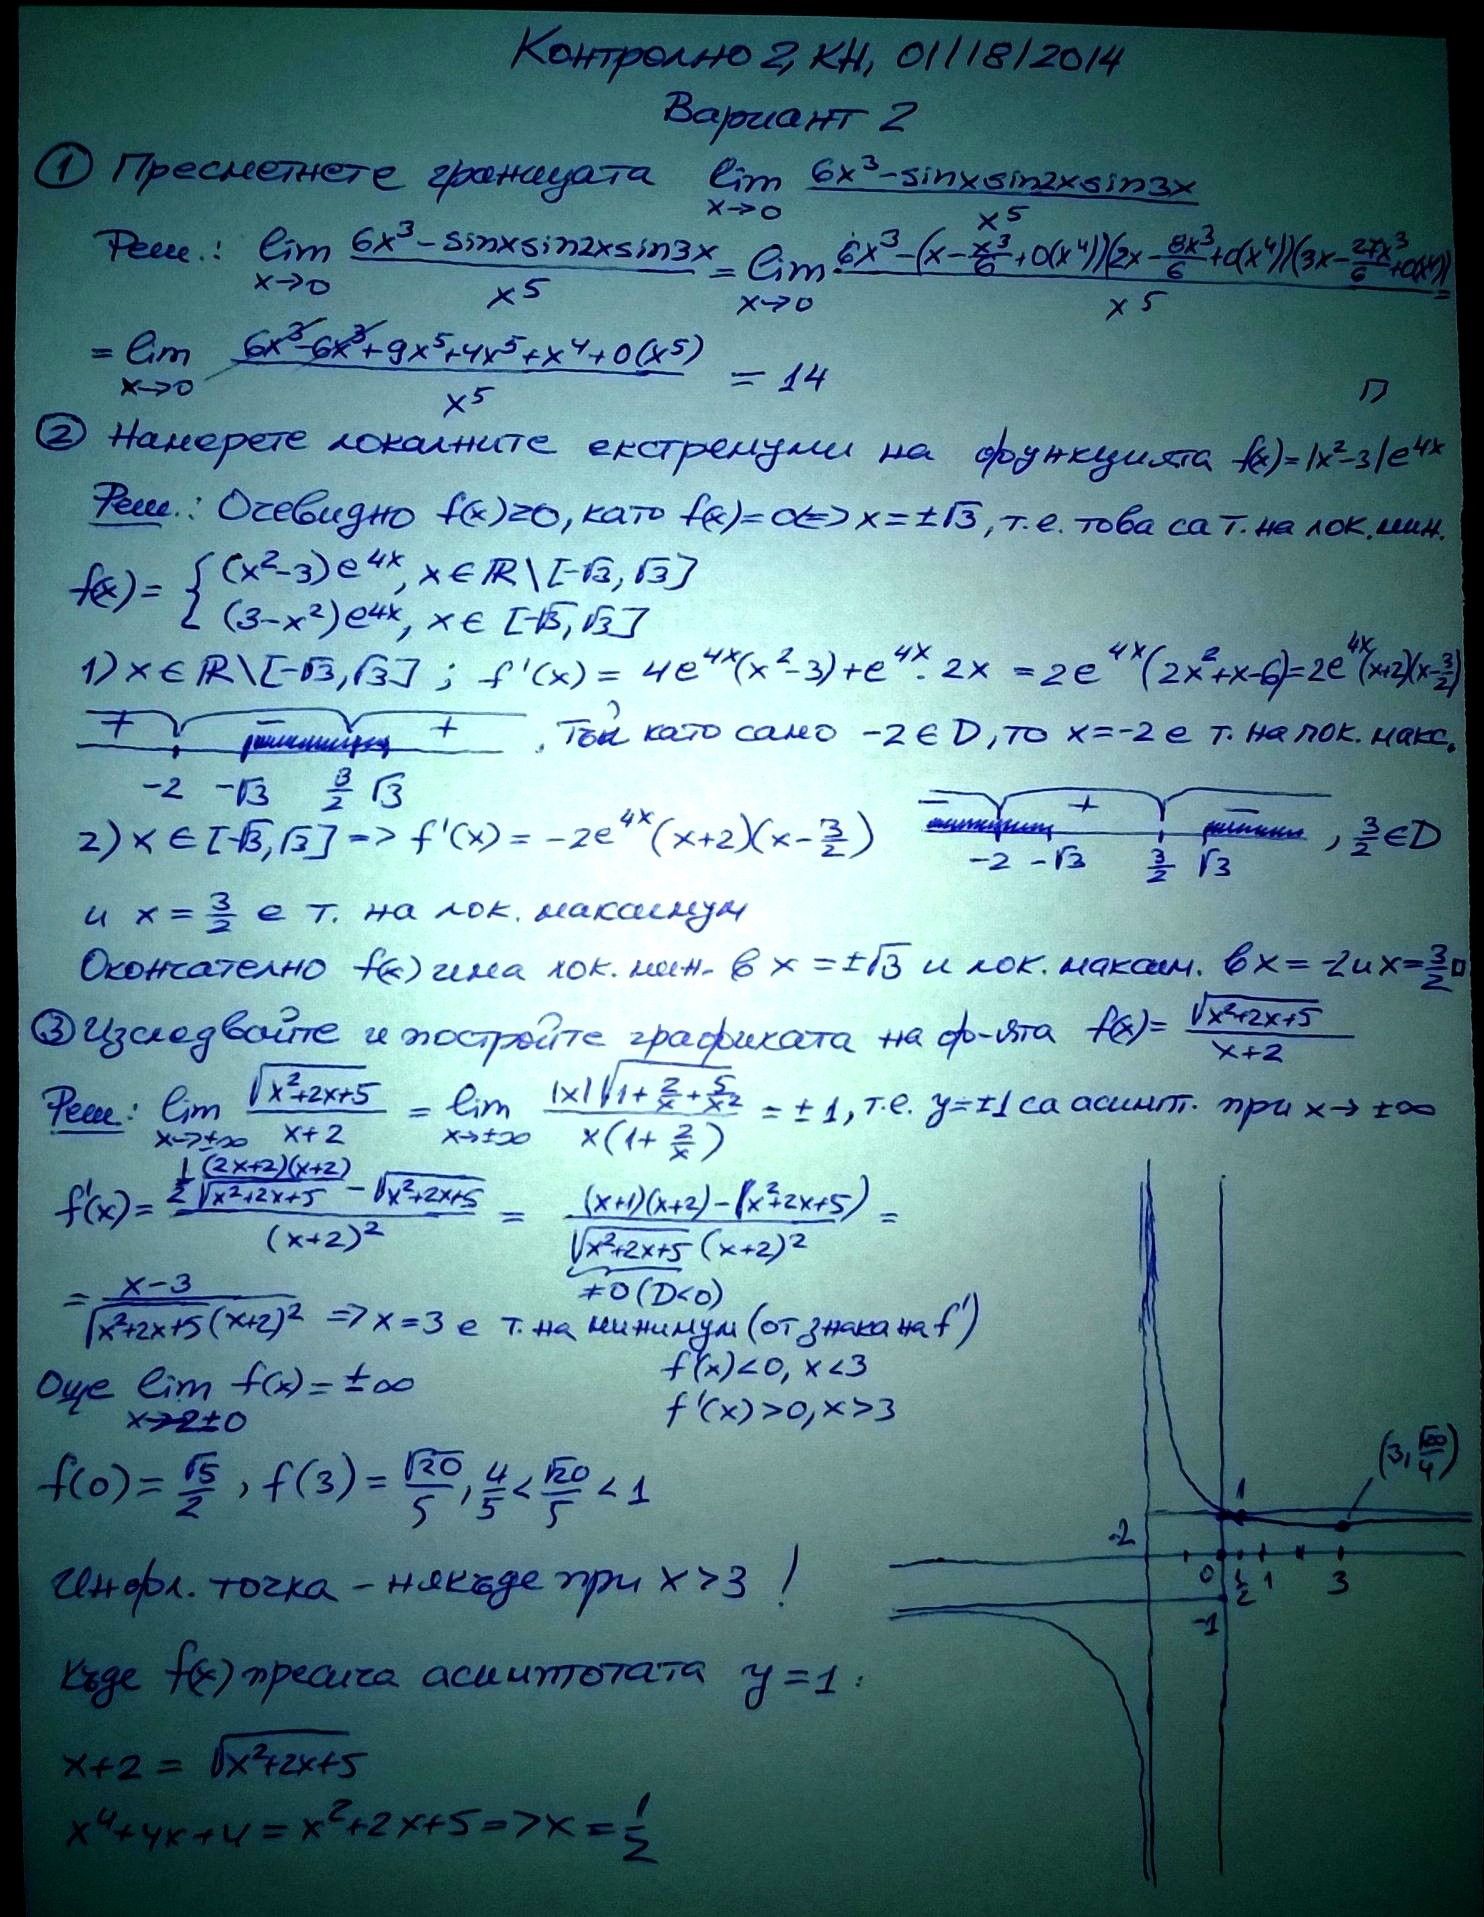 Контролно 2, КН, 01/18/2014
Вариант 2
① Пресметнете границата lim x→0 (6x³-sinxsin2xsin3x)/x⁵
Реш.: lim x→0 (6x³-sinxsin2xsin3x)/x⁵ = lim x→0 (6x³-(x-x³/6+0(x⁴))(2x-8x³/6+0(x⁴))(3x-27x³/6+0(x⁴)))/x⁵ =
= lim x→0 (6x³-6x³+9x⁵+4x⁵+x⁴+0(x⁵))/x⁵ = 14
② Намерете локалните екстремуми на функцията f(x)=|x²-3|e⁴ˣ
Реш.: Очевидно f(x)≥0, като f(x)=0<=>x=±√3, т.е. това са т. на лок. мин.
f(x)= { (x²-3)e⁴ˣ, x∈ℝ\[-√3,√3]
(3-x²)e⁴ˣ, x∈[-√3,√3]
1) x∈ℝ\[-√3,√3]; f'(x) = 4e⁴ˣ(x²-3)+e⁴ˣ.2x = 2e⁴ˣ(2x²+x-6)=2e⁴ˣ(x+2)(x-3/2)
+ - + . Тъй като само -2∈D, то x=-2 е т. на лок. макс.
-2 -√3 3/2 √3
2) x∈[-√3,√3] => f'(x) = -2e⁴ˣ(x+2)(x-3/2) - + - , 3/2∈D
-2 -√3 3/2 √3
и x = 3/2 е т. на лок. максимум
Окончателно f(x) има лок. мин. в x=±√3 и лок. максим. в x=-2 и x=3/2
③ Изследвайте и постройте графиката на ф-ята f(x)= √(x²+2x+5)/(x+2)
Реш: lim x→±∞ √(x²+2x+5)/(x+2) = lim x→±∞ |x|√(1+2/x+5/x²)/(x(1+2/x)) = ±1, т.е. y=±1 са асимт. при x→±∞
f'(x)= (1/2 (2x+2)(x+2)/√(x²+2x+5) - √(x²+2x+5))/(x+2)² = ((x+1)(x+2)-(x²+2x+5))/(√(x²+2x+5)(x+2)²) =
≠0 (D<0)
= (x-3)/(√(x²+2x+5)(x+2)²) => x=3 е т. на минимум (от знака на f')
f'(x)<0, x<3
Още lim x→-2±0 f(x)=±∞
f'(x)>0, x>3
f(0)= √5/2, f(3)= √20/5, 4/5<√20/5<1
(3, √20/4)
1
-2
0 1/2 1 3
-1
Инфл. точка - някъде при x>3 !
Къде f(x) пресича асимптотата y=1:
x+2 = √(x²+2x+5)
x⁴+4x+4=x²+2x+5=>x=1/2